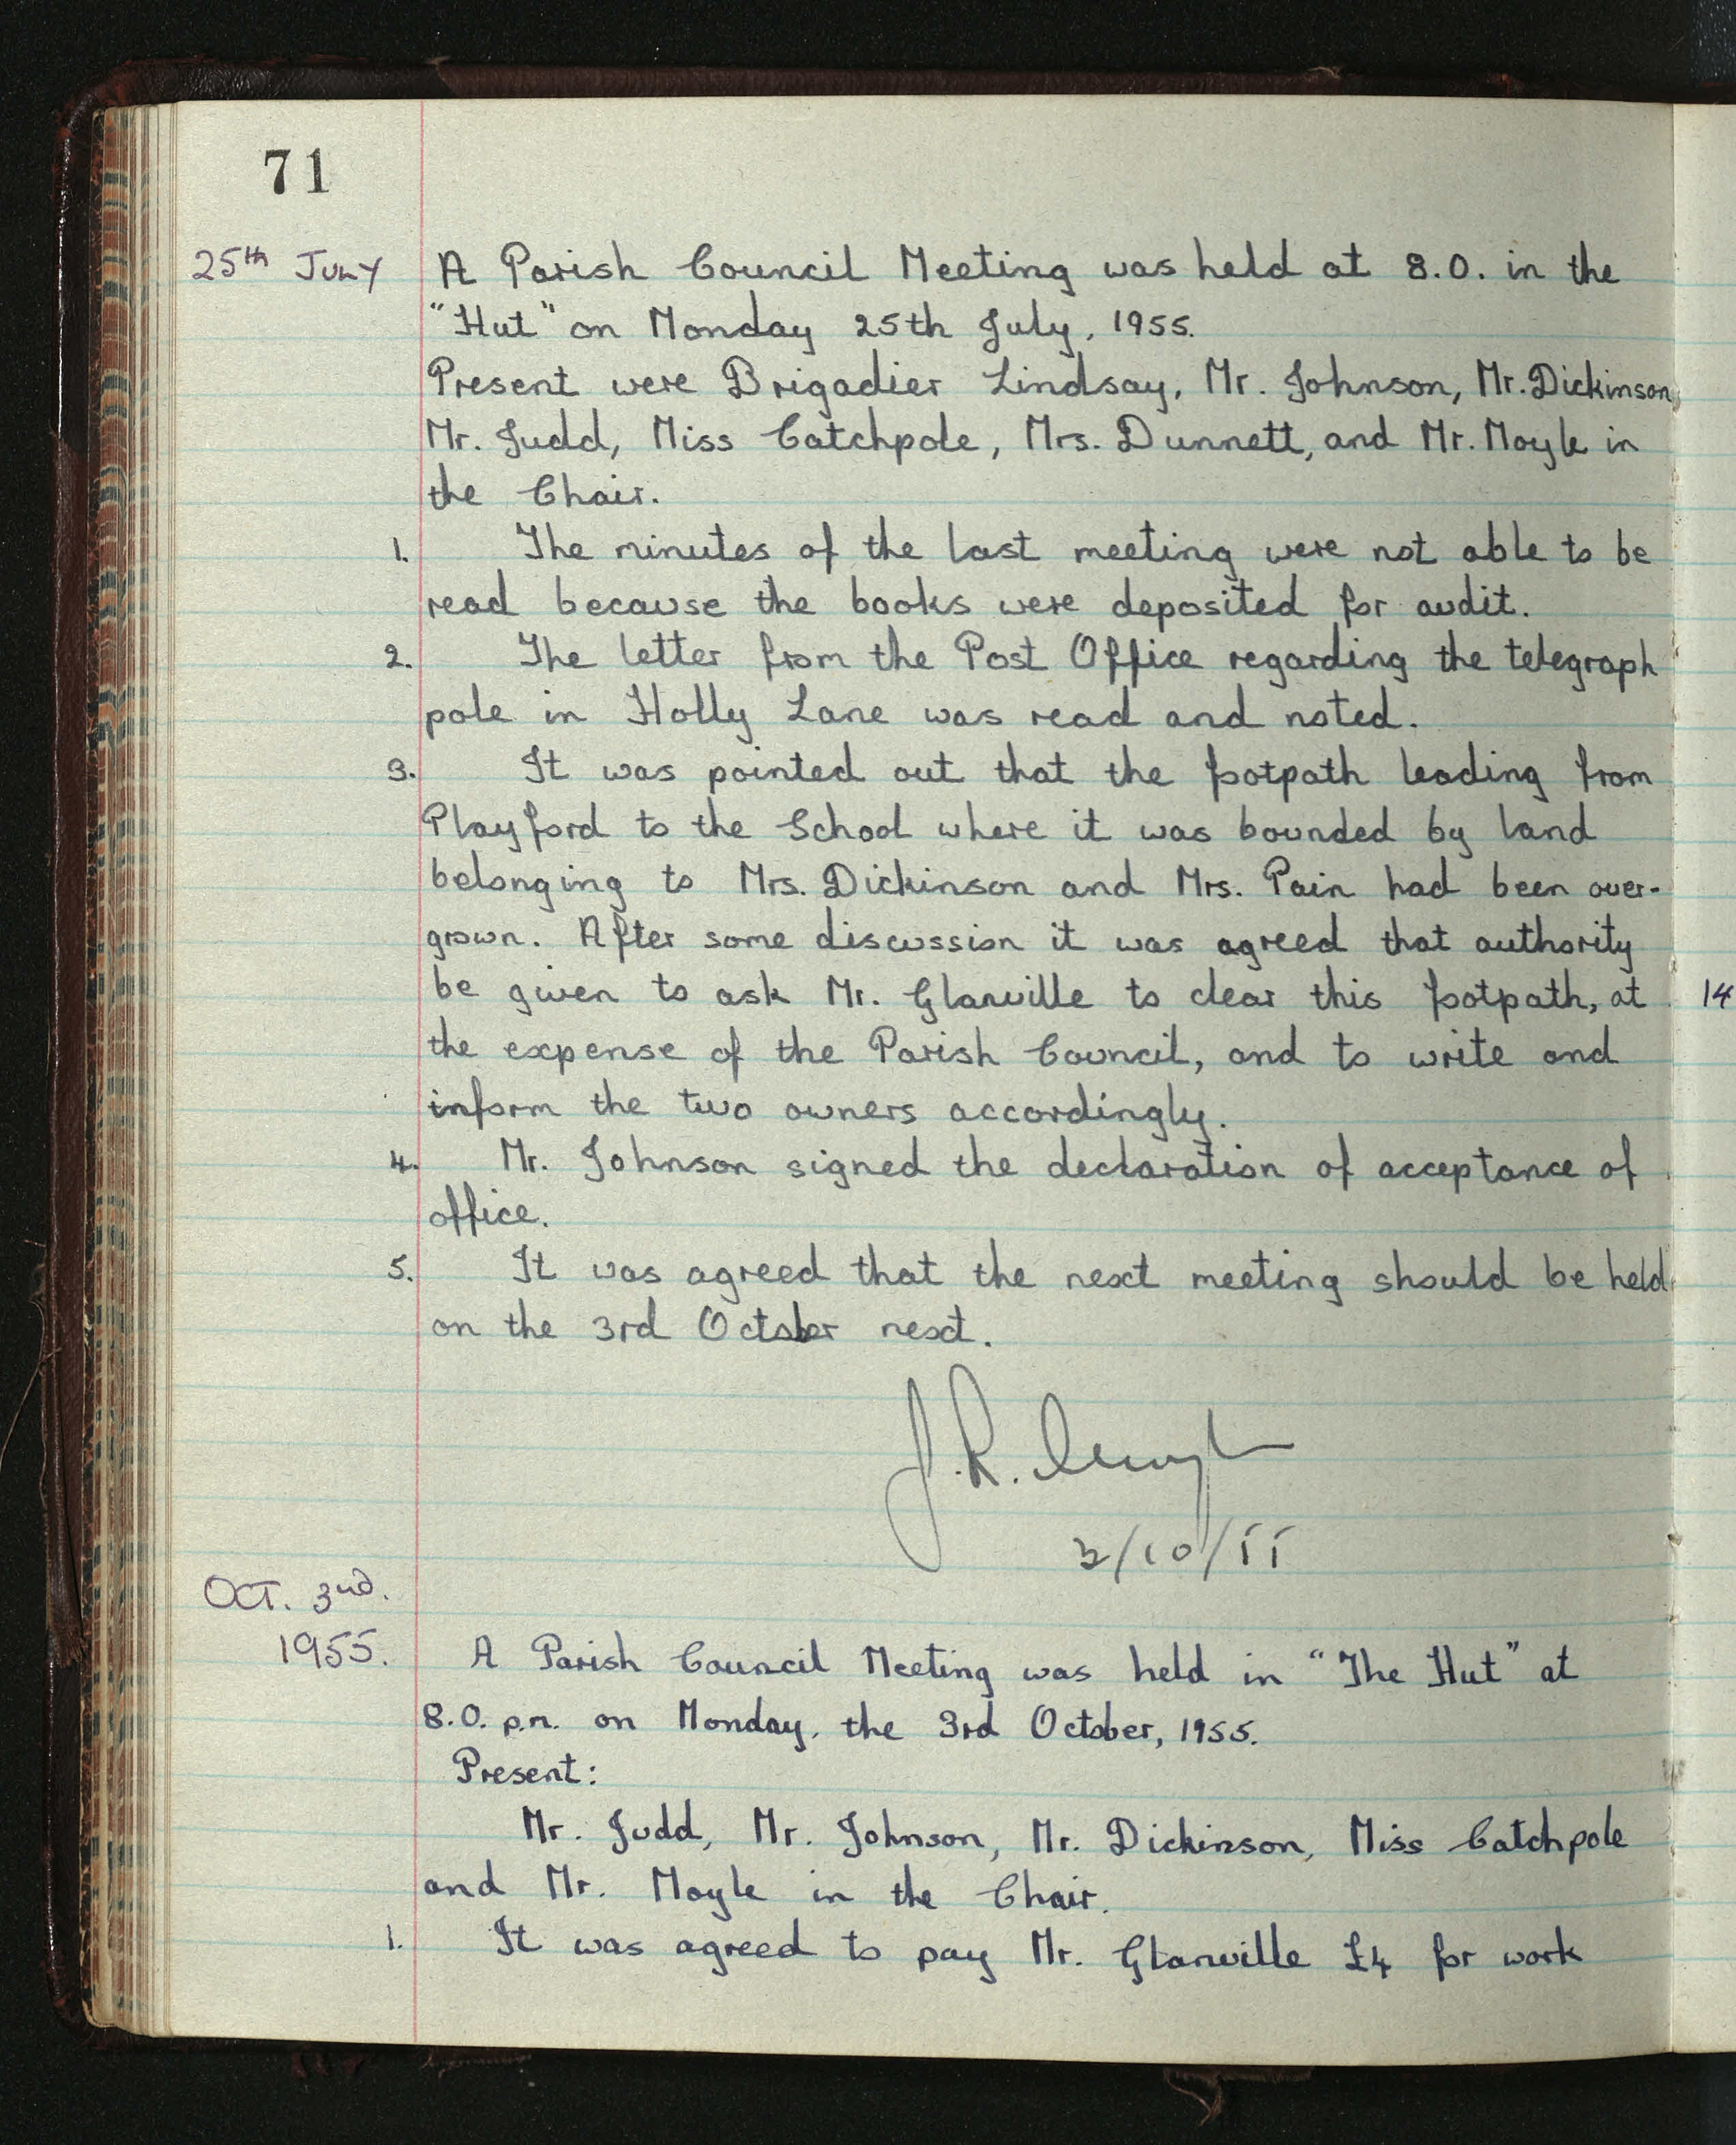 71
25th JULY
A Parish Council Meeting was held at 8.0. in the
"Hut" on Monday 25th July, 1955.
Present were Brigadier Lindsay, Mr. Johnson, Mr. Dickinson,
Mr. Judd, Miss Catchpole, Mrs. Dunnett, and Mr. Moyle in
the Chair.
1. The minutes of the last meeting were not able to be
read because the books were deposited for audit.
2. The letter from the Post Office regarding the telegraph
pole in Holly Lane was read and noted.
3. It was pointed out that the footpath leading from
Playford to the School where it was bounded by land
belonging to Mrs. Dickinson and Mrs. Pain had been over-
grown. After some discussion it was agreed that authority
be given to ask Mr. Glanville to clear this footpath, at
the expense of the Parish Council, and to write and
inform the two owners accordingly.
4. Mr. Johnson signed the declaration of acceptance of
office.
5. It was agreed that the next meeting should be held
on the 3rd October next.
J.R. Moyle
3/10/55
OCT. 3rd.
1955.
A Parish Council Meeting was held in "The Hut" at
8.0. p.m. on Monday, the 3rd October, 1955.
Present:
Mr. Judd, Mr. Johnson, Mr. Dickinson, Miss Catchpole
and Mr. Moyle in the Chair.
1. It was agreed to pay Mr. Glanville £4 for work
14